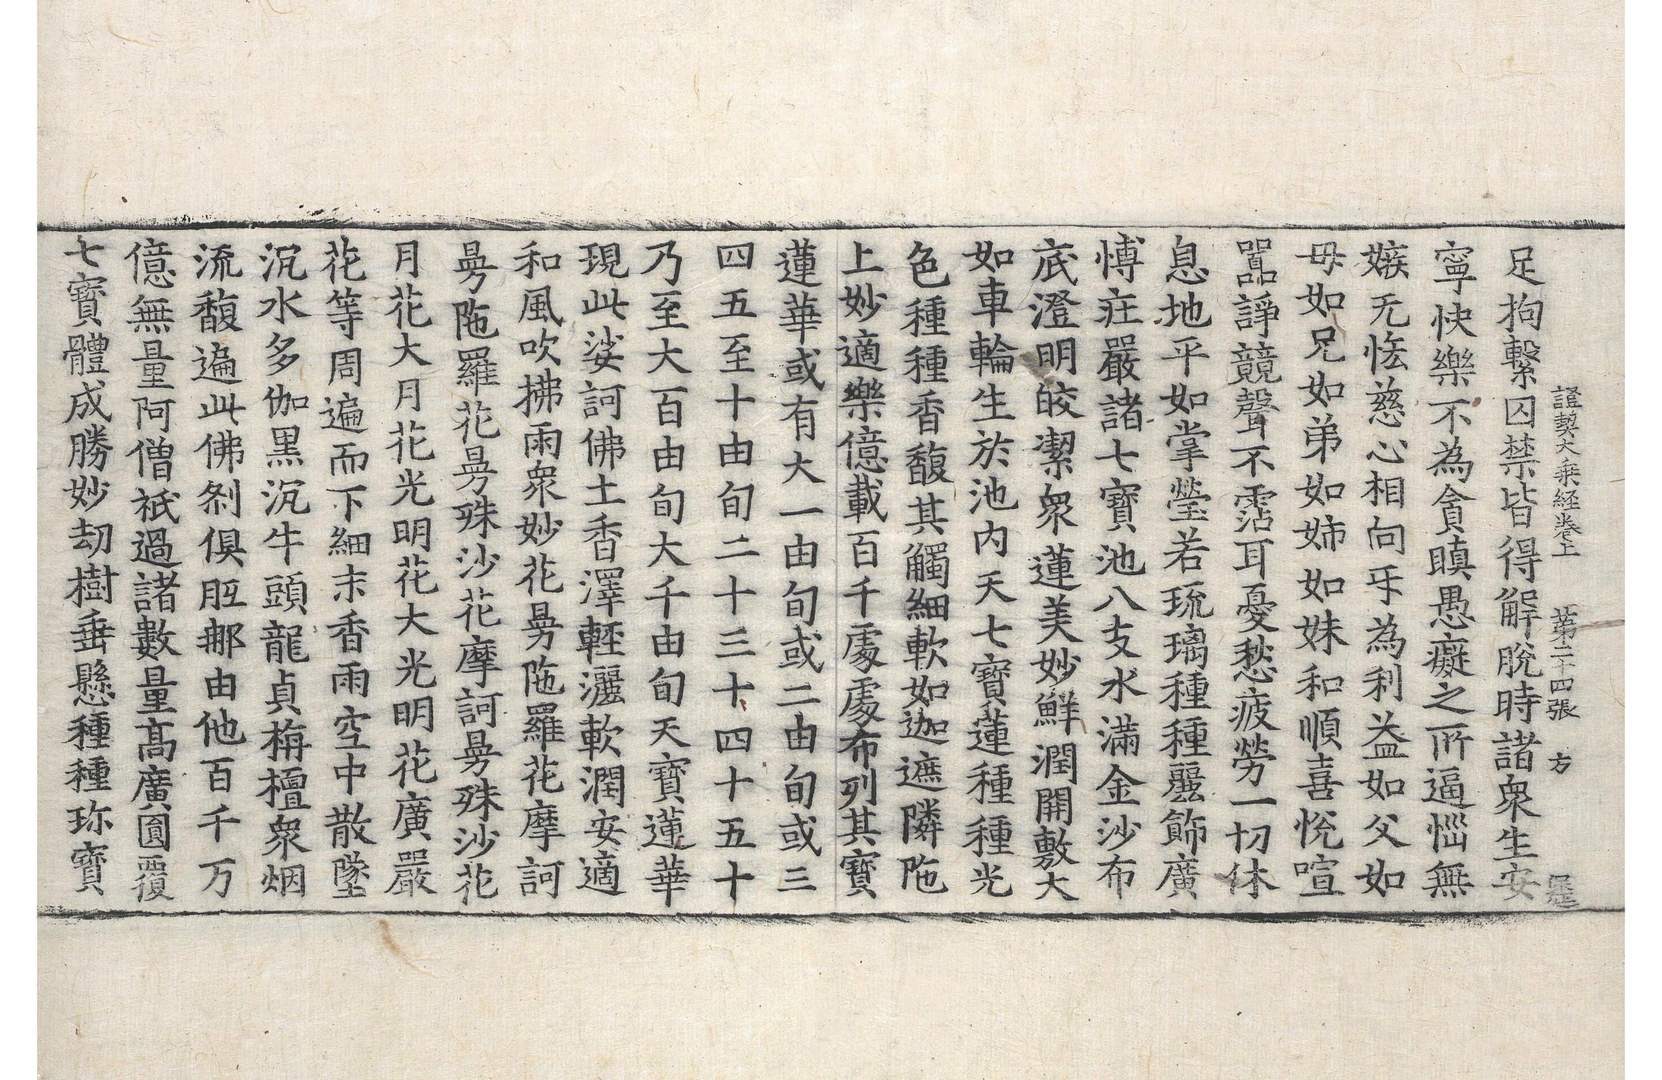 證契大乘経卷上　第二十四張　方
足拘繫囚禁皆得解脫時諸衆生安
寧快樂不為貪瞋愚癡之所逼惱無
嫉无恡慈心相向牙為利益如父如
母如兄如弟如姉如妹和順喜悅喧
嚚諍競聲不霑耳憂愁疲勞一切休
息地平如掌瑩若琉璃種種嚴飾廣
博莊嚴諸七寶池八支水滿金沙布
底澄明皎潔衆蓮美妙鮮潤開敷大
如車輪生於池內天七寶蓮種種光
色種種香馥其觸細軟如迦遮隣陁
上妙適樂億載百千處處布列其寶
蓮華或有大一由旬或二由旬或三
四五至十由旬二十三十四十五十
乃至大百由旬大千由旬天寶蓮華
現此娑訶佛土香澤輕灑軟潤安適
和風吹拂雨衆妙花曼陁羅花摩訶
曼陁羅花曼殊沙花摩訶曼殊沙花
月花大月花光明花大光明花廣嚴
花等周遍而下細末香雨空中散墜
沉水多伽黑沉牛頭龍貞栴檀衆烟
流馥遍此佛剎俱胝那由他百千万
億無量阿僧祇過諸數量高廣圓覆
七寶體成勝妙劫樹垂懸種種珎寶